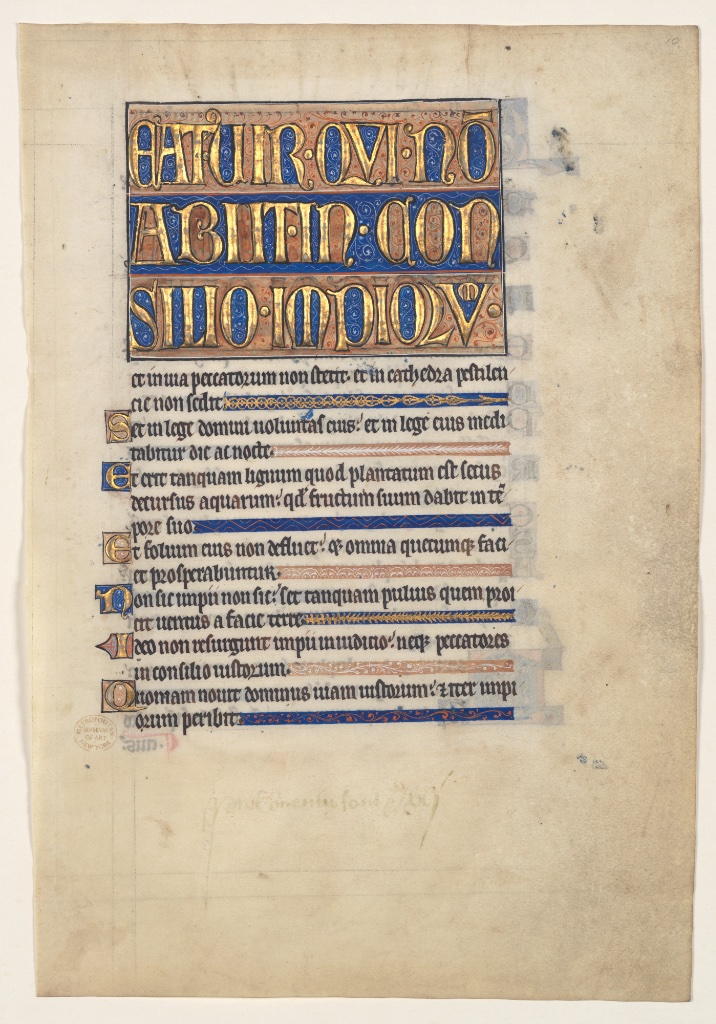 EATUIR·QVI·NŌ
ABIIT·IN·CON
SILIO·IMPIOꝜVᵐ·
et in uia peccatorum non stetit· et in cathedra pestilen
cie non sedit·
Set in lege domini uoluntas eius: et in lege eius medi
tabitur die ac nocte·
Et erit tanquam lignum quod plantatum est secus
decursus aquarum: qd̓ fructum suum dabit in tē
pore suo
Et folium eius non defluet: ⁊ omnia quecunqꝫ faci
et prosperabuntur·
Non sic impii non sic: set tanquam puluis quem proi
cit uentus a facie terre·
Ideo non resurgunt impii in iudicio: neqꝫ peccatores
in consilio iustorum·
Quoniam nouit dominus uiam iustorum: ⁊ iter impi
orum peribit·
METROPOLITAN
MUSEUM
OF ART
NEW YORK